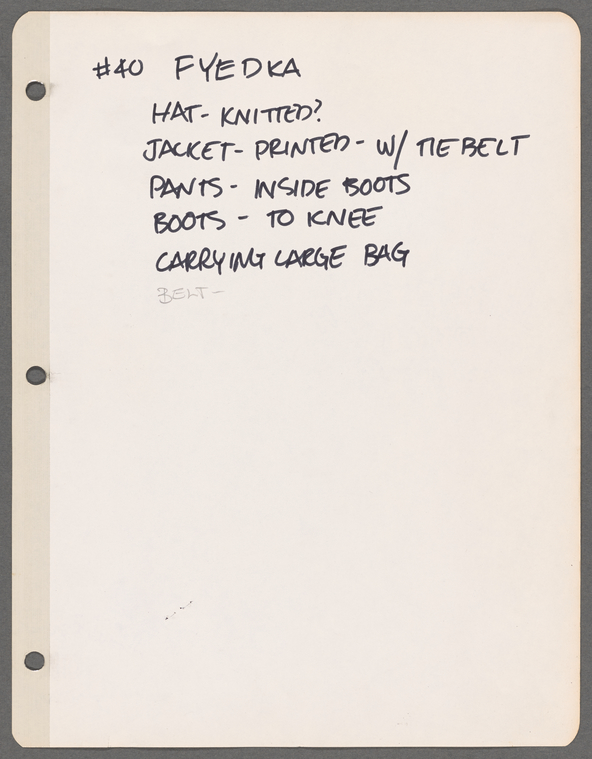 #40 FYEDKA
HAT- KNITTED?
JACKET- PRINTED- W/ TIE BELT
PANTS- INSIDE BOOTS
BOOTS - TO KNEE
CARRYING LARGE BAG
BELT-